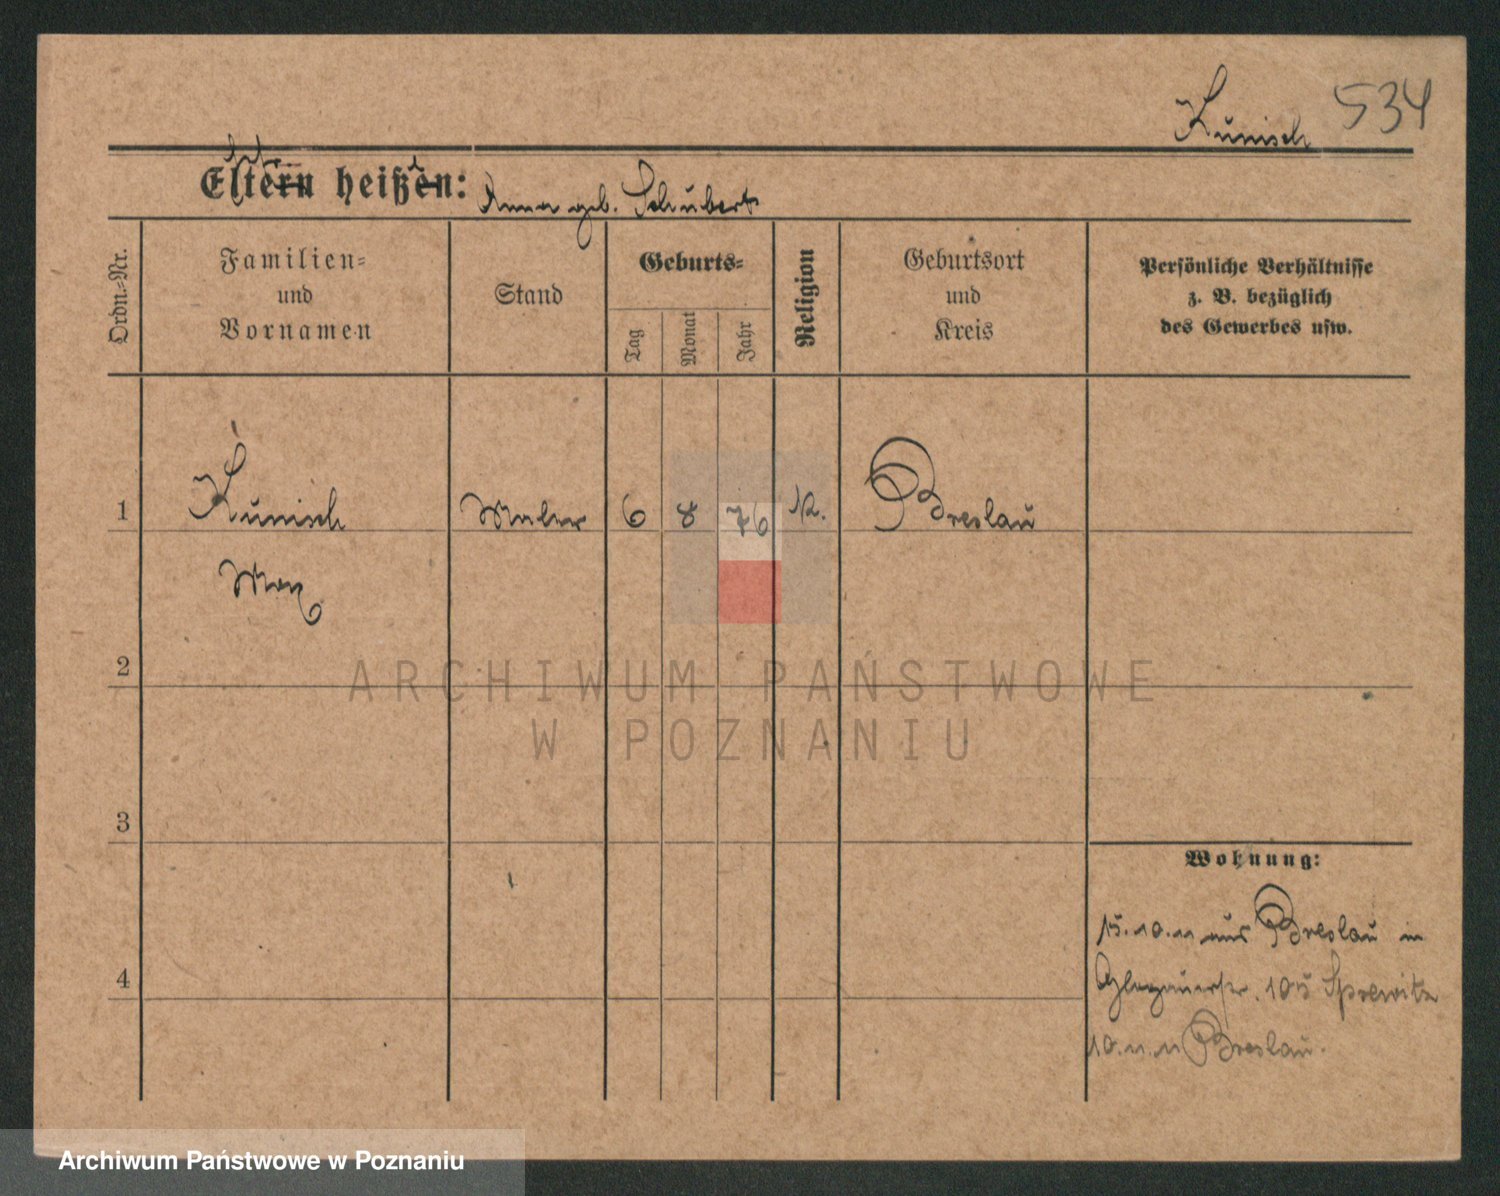 Kunisch 534
Eltern heißen: Anna geb. Schubert
Ordn.-Nr.
Familien-
und
Vornamen
Stand
Geburts-
Tag
Monat
Jahr
Religion
Geburtsort
und
Kreis
Persönliche Verhältnisse
z. B. bezüglich
des Gewerbes usw.
1 Kunisch Maler 6 8 76 k. Breslau
Max
2
ARCHIWUM PAŃSTWOWE
W POZNANIU
3
Wohnung:
15.10.11 aus Breslau in
4
Glogauerstr. 105
10.11.11 Breslau.
Archiwum Państwowe w Poznaniu